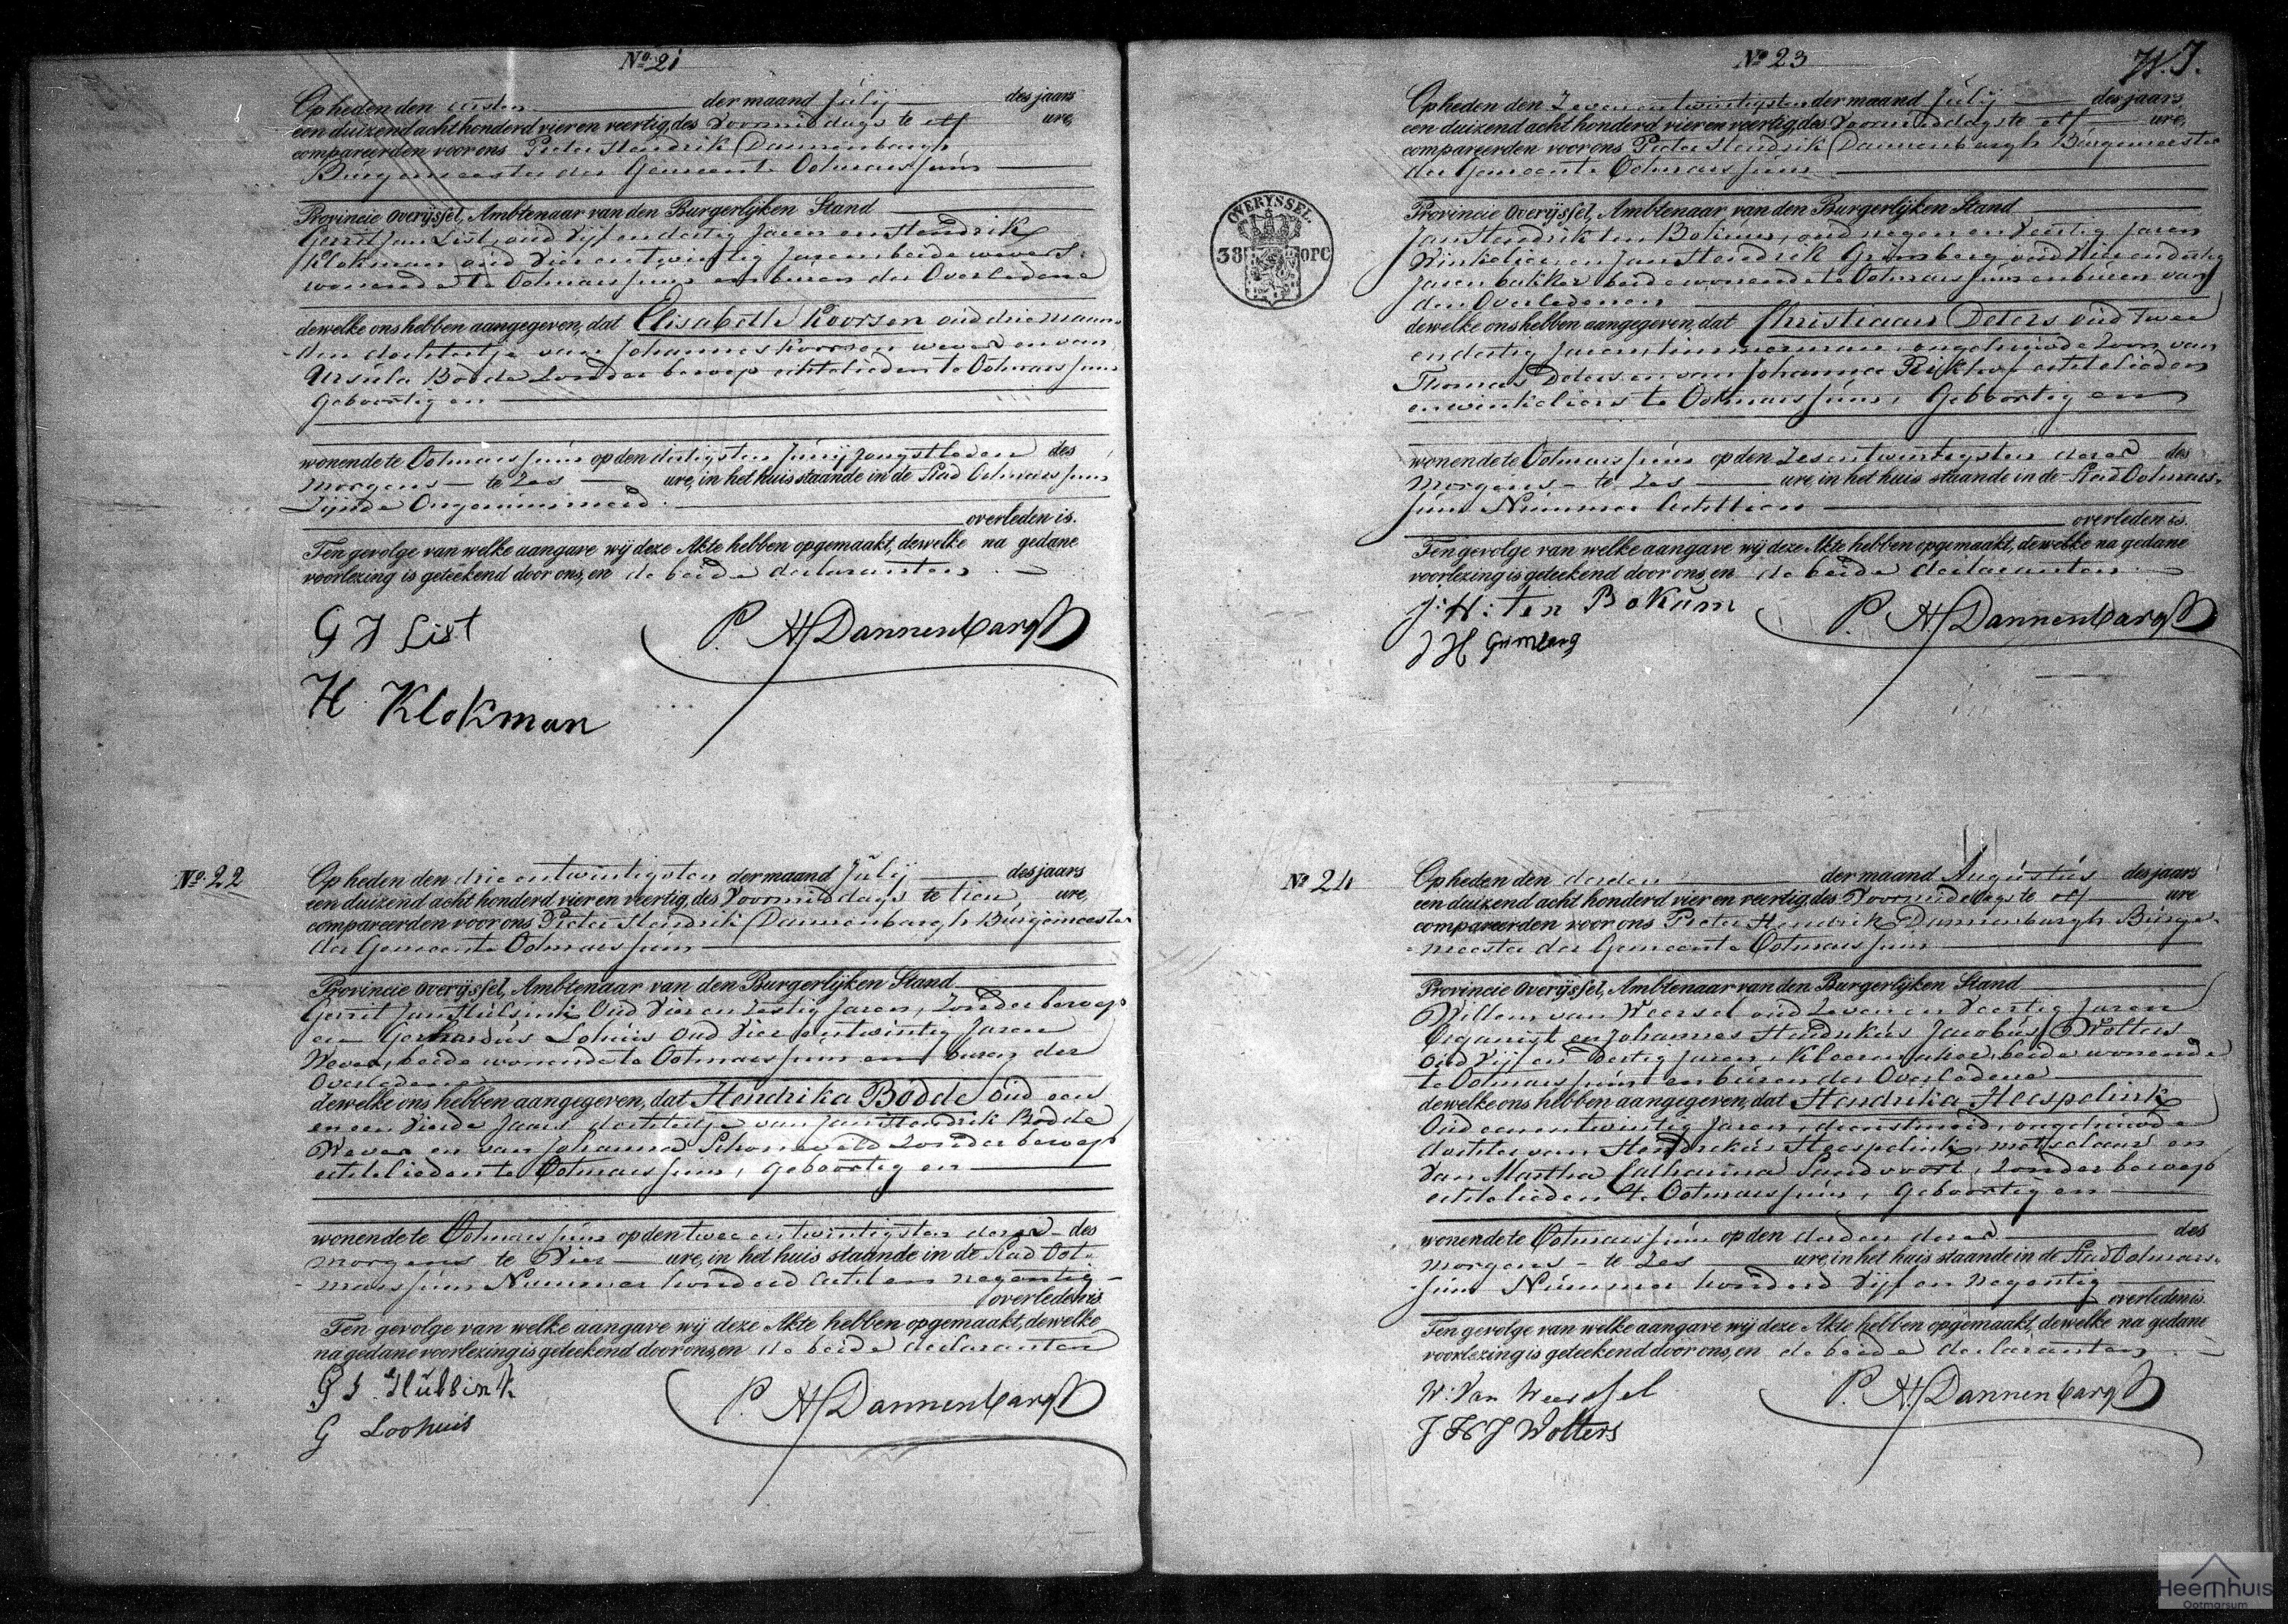 Nº 21
Op heden den eersten der maand Julij des jaars
een duizend acht honderd vier en veertig, des voormiddags te elf ure,
compareerden voor ons Pieter Hendrik Dannenbargh
Burgemeester der Gemeente Ootmarssum
Provincie Overijssel, Ambtenaar van den Burgerlijken Stand
Gerrit Jan List, oud vijf en dertig Jaren en Hendrik
Klokman oud vier en twintig Jaren beide wevers
wonende te Ootmarssum en buren der Overledene
dewelke ons hebben aangegeven, dat Elisabeth Koorsen oud drie maan-
den dochtertje van Johannes Koorsen wever en van
Ursula Bodde zonder beroep echtelieden te Ootmarssum
Geboortig en
wonende te Ootmarssum op den dertigsten Junij Jongstleden des
morgens te zes ure, in het huis staande in de Stad Ootmarssum
zijnde Ongenummerd
overleden is.
Ten gevolge van welke aangave wij deze Akte hebben opgemaakt, dewelke na gedane
voorlezing is geteekend door ons, en de beide declaranten
G J List P. H. Dannenbargh
H Klokman
Nº 22
Op heden den drie en twintigsten der maand Julij des jaars
een duizend acht honderd vier en veertig, des Voormiddags te tien ure,
compareerden voor ons Pieter Hendrik Dannenbargh Burgemeester
der Gemeente Ootmarssum
Provincie Overijssel, Ambtenaar van den Burgerlijken Stand
Gerrit Jan Oud Vier en Zestig Jaren, Zonder beroep
en Gerhardus Lohuis Oud Vier en twintig Jaren
Wever, beide wonende te Ootmarssum en buren der
Overledene
dewelke ons hebben aangegeven, dat Hendrika Bodde oud een
en een Vierde Jaars dochtertje van Jan Hendrik Bodde
Wever en van Johanna Schoneveld Zonder beroep
echtelieden te Ootmarssum, Geboortig en
wonende te Ootmarssum op den twee en twintigsten dezer des
morgens te Vier ure, in het huis staande in de Stad Oot-
marssum Nummer honderd acht en negentig
overleden is.
Ten gevolge van welke aangave wij deze Akte hebben opgemaakt, dewelke
na gedane voorlezing is geteekend door ons, en de beide declaranten
G J P. H. Dannenbargh
G Loohuis
Nº 23
Op heden den Zeven en twintigsten der maand Julij des jaars
een duizend acht honderd vier en veertig, des Voormiddags te elf ure,
compareerden voor ons Pieter Hendrik Dannenbargh Burgemeester
der Gemeente Ootmarssum
Provincie Overijssel, Ambtenaar van den Burgerlijken Stand
Jan Hendrik ten Bokum, oud negen en Veertig Jaren
Winkelier en Jan Hendrik Grimberg oud Vier en dertig
Jaren bakker beide wonende te Ootmarssum en buren van
den Overledenen
dewelke ons hebben aangegeven, dat Christiaan Deters oud twee
en dertig Jaren, timmerman, ongehuwde Zoon van
Thomas Deters en van Johanna echtelieden
en winkeliers te Ootmarssum, Geboortig en
wonende te Ootmarssum op den Zes en twintigsten dezer des
morgens te Zes ure, in het huis staande in de Stad Ootmars-
sum Nummer Achttien
overleden is.
Ten gevolge van welke aangave wij deze Akte hebben opgemaakt, dewelke na gedane
voorlezing is geteekend door ons, en de beide declaranten
J: H: Ten Bokum P. H. Dannenbargh
J H Grimberg
OVERYSSEL.
38 OPC
Nº 24
Op heden den derden der maand Augustus des jaars
een duizend acht honderd vier en veertig, des Voormiddags te elf ure
compareerden voor ons Pieter Hendrik Dannenburgh Burge-
meester der Gemeente Ootmarssum
Provincie Overijssel, Ambtenaar van den Burgerlijken Stand
Willem van Weersel oud Zeven en Veertig Jaren
Organist en Johannes Hendrikus Jacobus Wolters
Oud Vijf en Dertig Jaren, Kleermaker, beide wonende
te Ootmarssum en buren der Overledene
dewelke ons hebben aangegeven, dat Hendrika Heespelink
Oud een en twintig Jaren, dienstmeid, ongehuwde
dochter van Hendrikus Heespelink, metselaar en
Van Martha Catharina Sandvoort, Zonder beroep
echtelieden te Ootmarssum, Geboortig en
wonende te Ootmarssum op den derden dezer des
morgens te Zes ure, in het huis staande in de Stad Ootmars-
sum Nummer honderd Vijf en Negentig
overleden is.
Ten gevolge van welke aangave wij deze Akte hebben opgemaakt, dewelke na gedane
voorlezing is geteekend door ons, en de beide declaranten
W: Van Weerssel P. H. Dannenbargh
J H J Wolters
Heemhuis
Ootmarsum